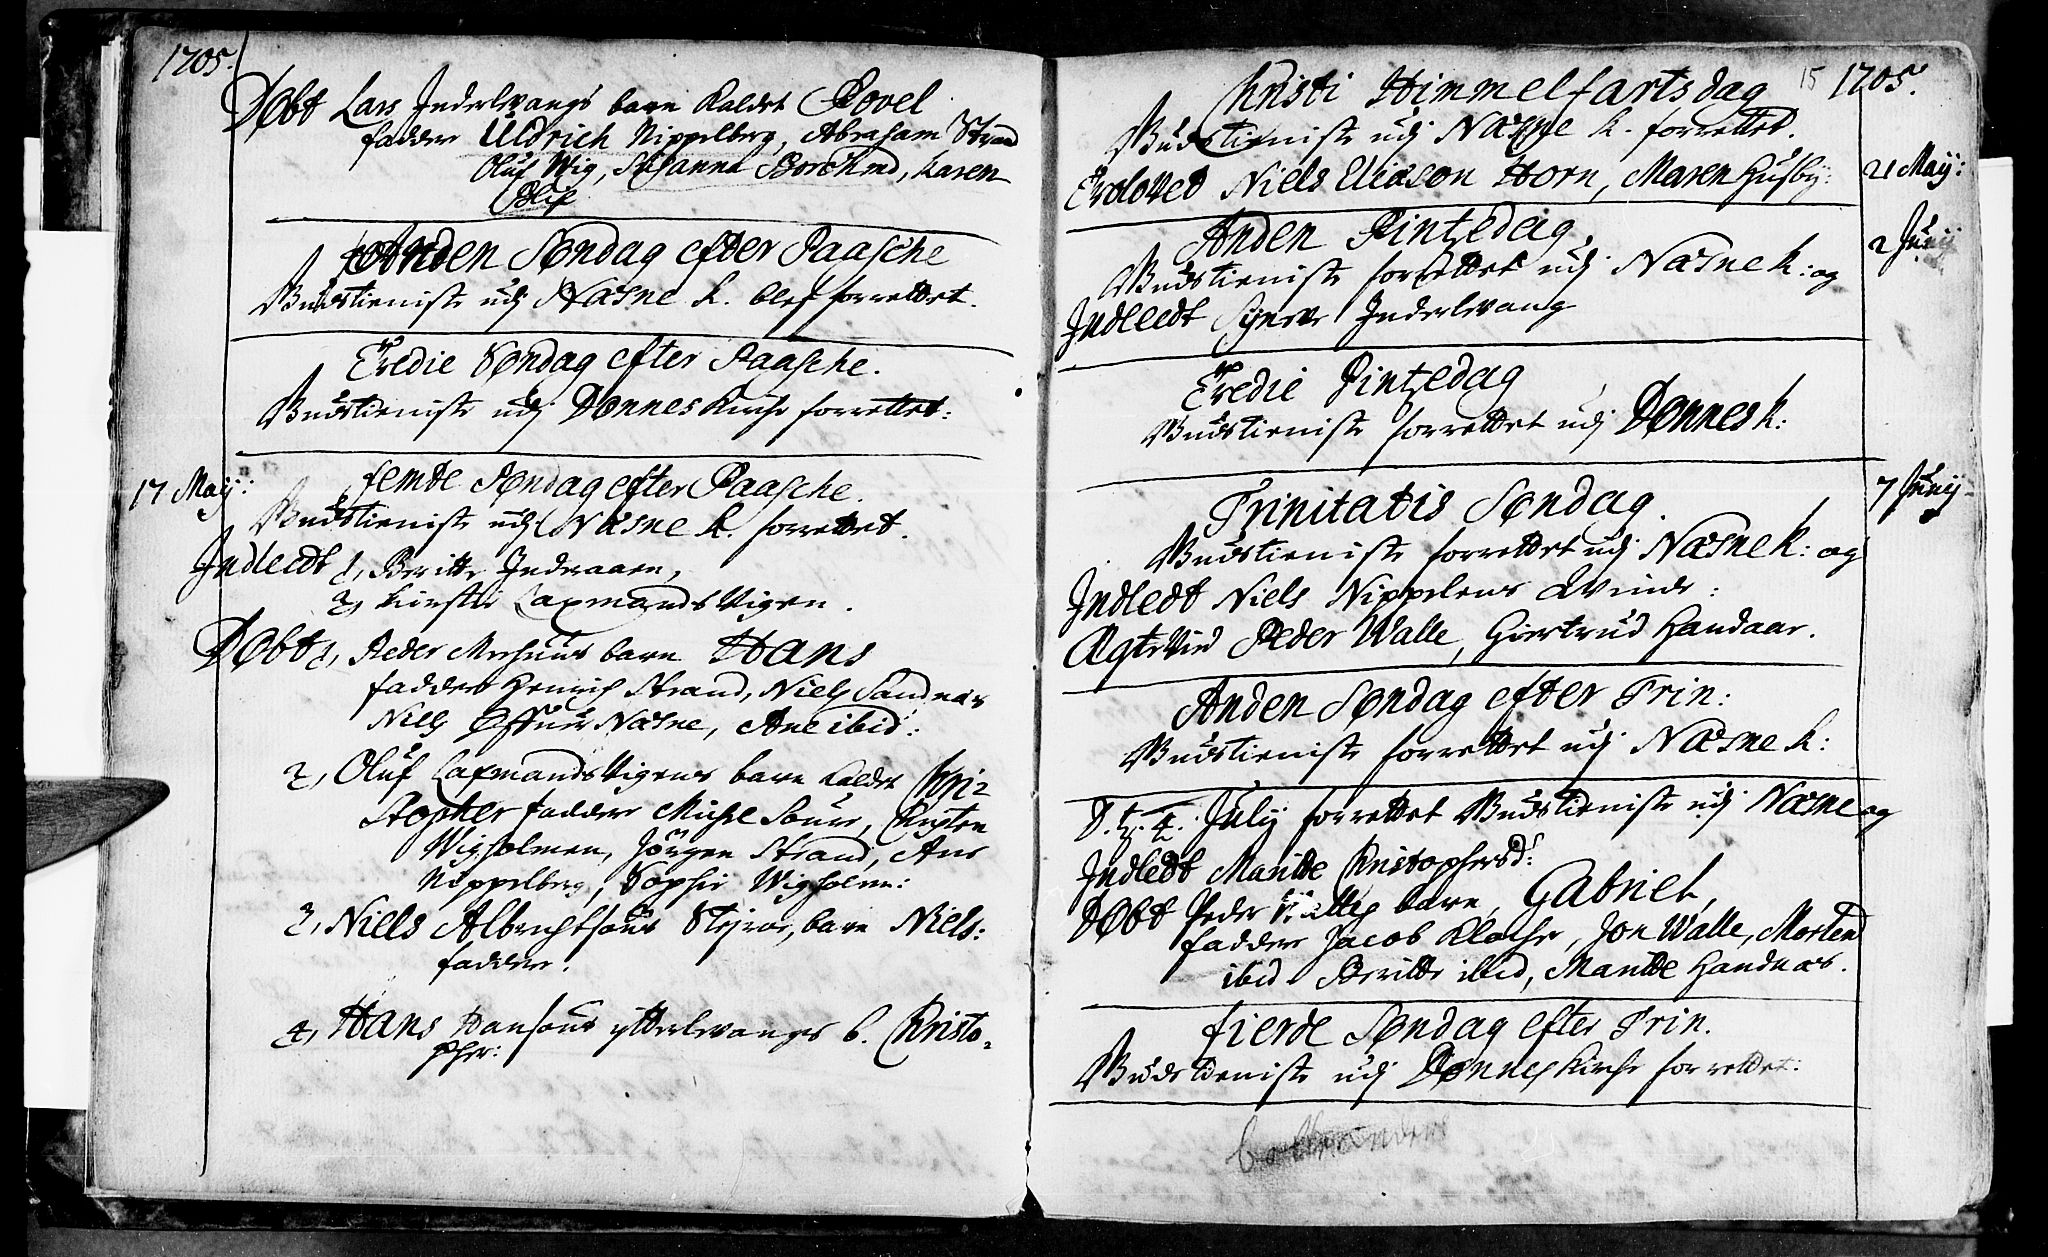 1705.
Døbt Lars Inderlvangs barn kaldet Povel
fadder Uldrich Nippelberg, Abraham Strand
Oluf Wig, Susanna Borchmd, Karen
Anden Søndag efter Paasche
Gudstieniste udj Næsne K. blef forrettet.
Tredie Søndag efter Paasche.
Gudstieniste udj Dønnes Kirche forrettet:
17 Maij:
femte Søndag efter Paasche.
Gudstieniste udj Næsne K. forrettet.
Indleedt 1, Beritte Indraaen,
2, Kirsti Laxmands Vigen.
Døbt 1, Peder barn Hans
fadder Henrich Strand, Niels Sandnæs
Niels Næsne, Ane ibid:
2, Oluf Laxmands Vigens barn kaldet Chri-
stopher fadder Michel Søur, Christen
Wigholmen, Jörgen Strand, Ane
Nippelberg, Sophie Wigholm:
3, Niels Albrechtsøns barn Niels:
fadder.
4, Hans Hansøns ytterlvangs b. Christo-
pher:
15 1705.
Christi Himmelfartsdag
Gudstieniste udj Næsne K. forrettet.
Trolovet Niels Eliæson Horn, Maren Husby:
21 Maij:
Anden Pintzedag
2 Junij
Gudstieniste forrettet udj Næsne K: og
Indleedt Synnev Inderlvang
Tredie Pintzedag
Gudstieniste forrettet udj Dønnes K:
Trinitatis Søndag.
7 Junij
Gudstieniste forrettet udj Næsne K: og
Indledt Niels Nippelens Qvinde:
Ægteviet Peder Walle, Giertrud Handaar.
Anden Søndag efter Trin:
Gudstieniste forrettet udj Næsne K:
D. 4. July forrettet Gudstieniste udj Næsne og
Indledt Maritte Christophersd:
Døbt Peder barn, Gabriel,
fadder Jacob Klochr, Jon Walle, Morten
ibid. Beritte ibid, Maritte Handnæs.
fierde Søndag efter Trin.
Gudstieniste udj Dønnes Kirche forrettet: